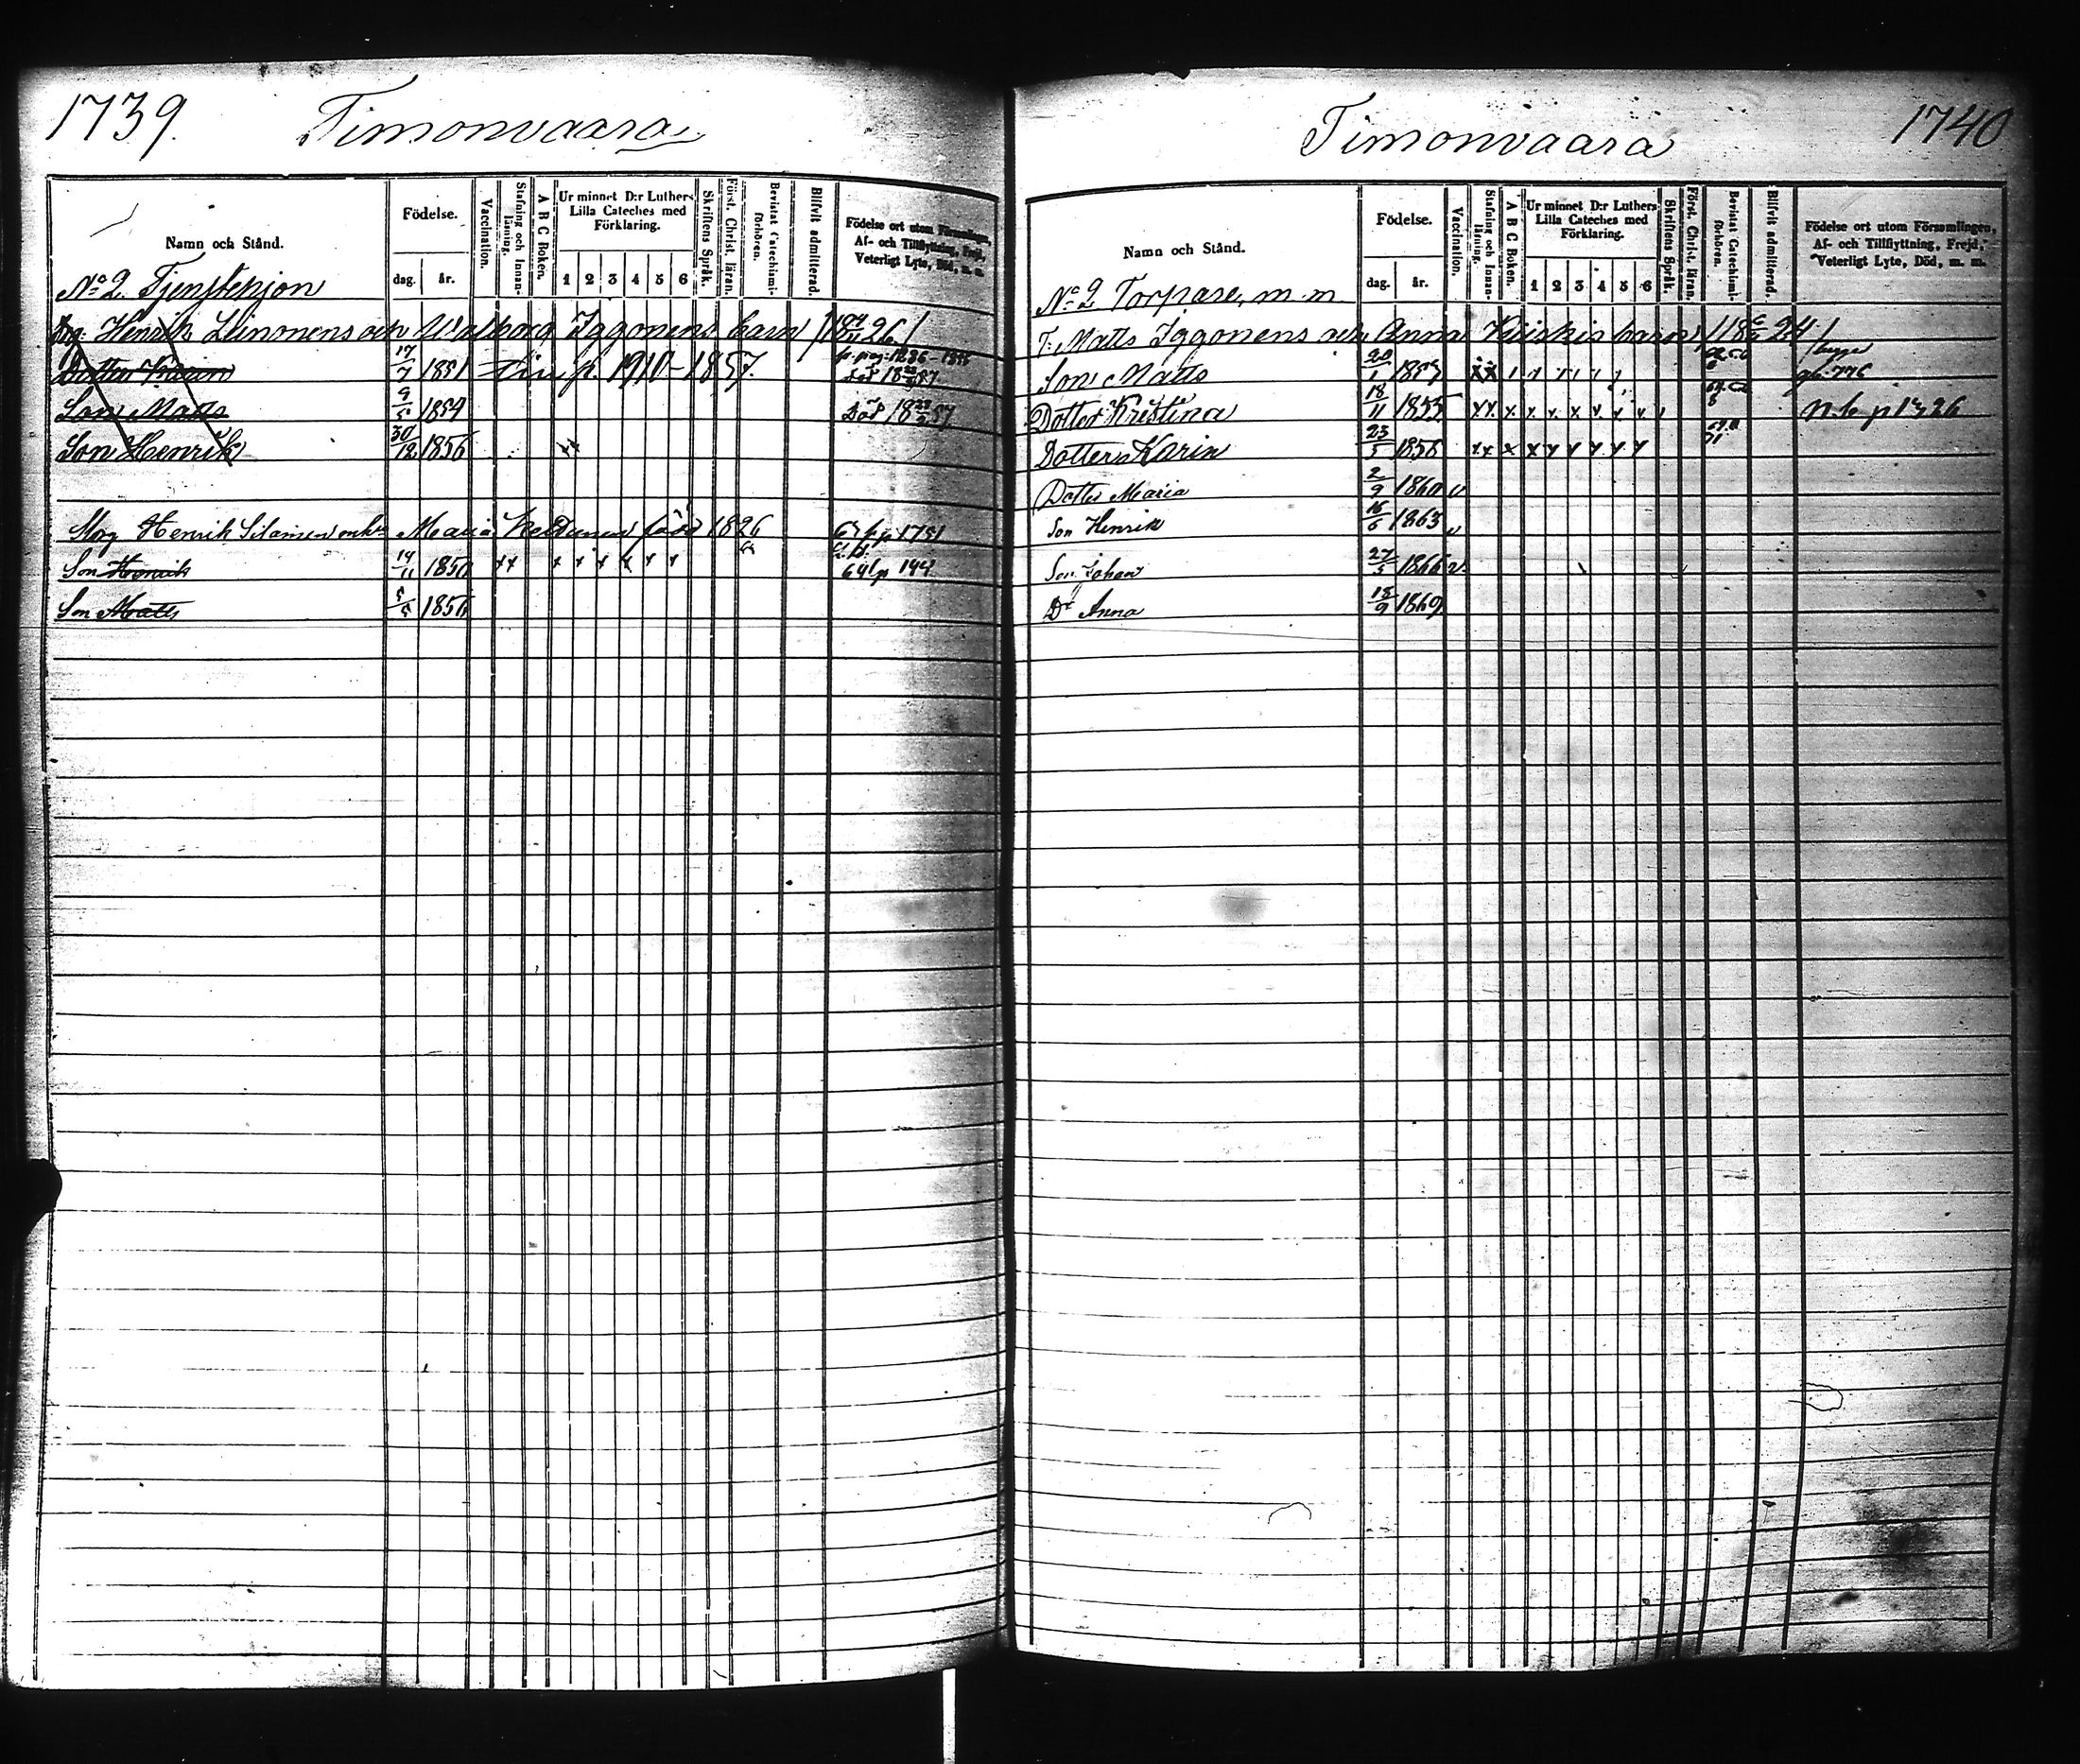 1739. Timonvaara
Namn och Stånd.
Födelse.
dag. år.
Vaccination.
Stafning och Innanläsning.
A B C Boken.
Ur minnet D:r Luthers Lilla Cateches med Förklaring.
1 2 3 4 5 6
Skriftens Språk.
Först. Christ. läran.
Bevistat Catechismiförhören.
Blifvit admitterad.
Födelse ort utom Församlingen, Af- och Tillflyttning, Frejd, Veterligt Lyte, Död, m. m.
No 2. Tjenstehjon
Henrik Leinonens och Walborg Iggonens barn
Dotter Karin 17/7 1851 p. 1910-1857. Död
Son Matts 9/5 1854 Död
Son Henrik 30/12 1856
Henrik Silainen Maria född 1826 67 p 1751
Son Henrik 14/11 1850
Son Matts 5/5 1856
Timonvaara 1740
Namn och Stånd.
Födelse.
dag. år.
Vaccination.
Stafning och Innanläsning.
A B C Boken.
Ur minnet D:r Luthers Lilla Cateches med Förklaring.
1 2 3 4 5 6
Skriftens Språk.
Först. Christ. läran.
Bevistat Catechismiförhören.
Blifvit admitterad.
Födelse ort utom Församlingen, Af- och Tillflyttning, Frejd, Veterligt Lyte, Död, m. m.
No 2 Torpare, m. m.
T. Matts Iggonens och Anna Kiiskis barn
Son Matts 20/1 1853
Dotter Kristina 18/11 1855 n.b. p 1326
Dottern Karin 23/5 1858
Dotter Maria 2/9 1860 v
Son Henrik 16/6 1863 v
Son Johan 27/5 1866 v
Dr Anna 18/9 1869